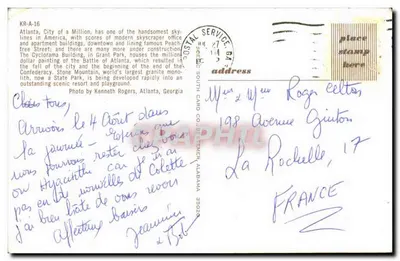 KR-A-16
Atlanta, City of a Million, has one of the handsomest sky-
lines in America, with scores of modern skyscraper office
and apartment buildings, downtown and lining famous Peach-
tree Street; and there are many more under construction.
The Cyclorama Building, in Grant Park, houses the million
dollar painting of the Battle of Atlanta, which resulted in
the fall of the city and the beginning of the end of the
Confederacy. Stone Mountain, world's largest granite mono-
lith, now a State Park, is being developed rapidly into an
outstanding scenic resort and playground.
Photo by Kenneth Rogers, Atlanta, Georgia
Chers tous,
Arrivons le 4 Août dans
la journée - Espère que
nous pourrons rester chez vous
ou Hyacinthe car je n'ai
pas eu de nouvelles de Colette -
J'ai bien hâte de vous revoir
Affectueux baisers
Jeannine
& Bob
POSTAL SERVICE, GA
place
stamp
here
address
Mr & Mme Roger
198 Avenue Guiton
La Rochelle, 17
FRANCE